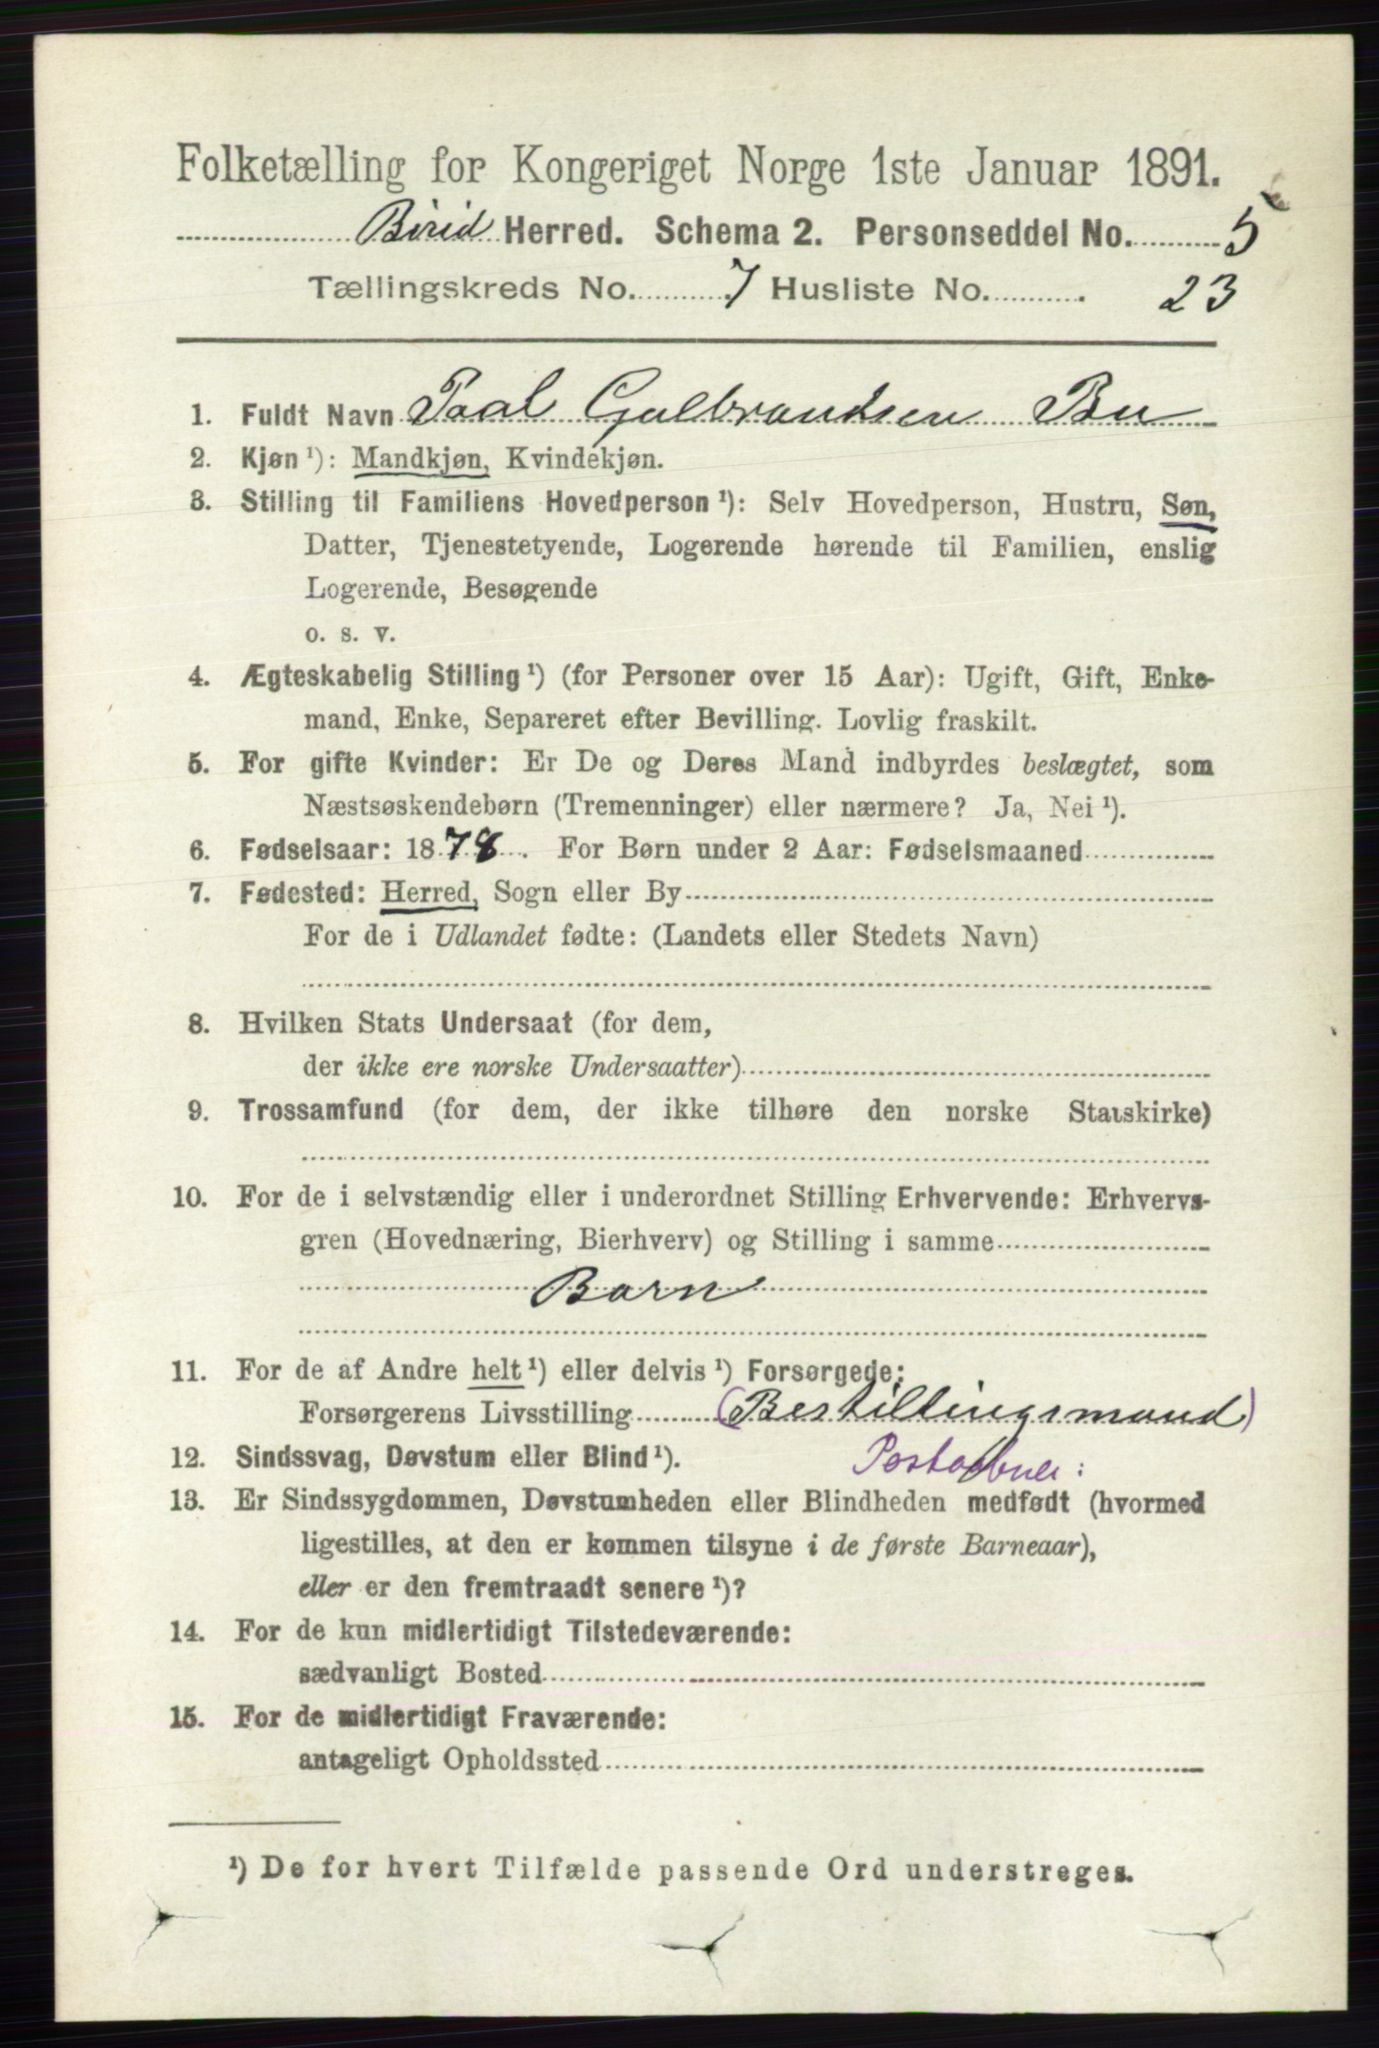 Folketælling for Kongeriget Norge 1ste Januar 1891.
Birid Herred. Schema 2. Personseddel No. 5
Tællingskreds No. 7 Husliste No. 23
1. Fuldt Navn Paal Gulbrandsen Bu
2. Kjøn ¹): Mandkjøn, Kvindekjøn.
3. Stilling til Familiens Hovedperson ¹): Selv Hovedperson, Hustru, Søn,
Datter, Tjenestetyende, Logerende hørende til Familien, enslig
Logerende, Besøgende
o. s. v.
4. Ægteskabelig Stilling ¹) (for Personer over 15 Aar): Ugift, Gift, Enke-
mand, Enke, Separeret efter Bevilling. Lovlig fraskilt.
5. For gifte Kvinder: Er De og Deres Mand indbyrdes beslægtet, som
Næstsøskendebørn (Tremenninger) eller nærmere? Ja, Nei ¹).
6. Fødselsaar: 1878. For Børn under 2 Aar: Fødselsmaaned
7. Fødested: Herred, Sogn eller By
For de i Udlandet fødte: (Landets eller Stedets Navn)
8. Hvilken Stats Undersaat (for dem,
der ikke ere norske Undersaatter)
9. Trossamfund (for dem, der ikke tilhøre den norske Statskirke)
10. For de i selvstændig eller i underordnet Stilling Erhvervende: Erhvervs-
gren (Hovednæring, Bierhverv) og Stilling i samme
Barn
11. For de af Andre helt ¹) eller delvis ¹) Forsørgede:
Forsørgerens Livsstilling (Bestillingsmand)
12. Sindssvag, Døvstum eller Blind ¹). 
13. Er Sindssygdommen, Døvstumheden eller Blindheden medfødt (hvormed
ligestilles, at den er kommen tilsyne i de første Barneaar),
eller er den fremtraadt senere ¹)?
14. For de kun midlertidigt Tilstedeværende:
sædvanligt Bosted
15. For de midlertidigt Fraværende:
antageligt Opholdssted
¹) De for hvert Tilfælde passende Ord understreges.